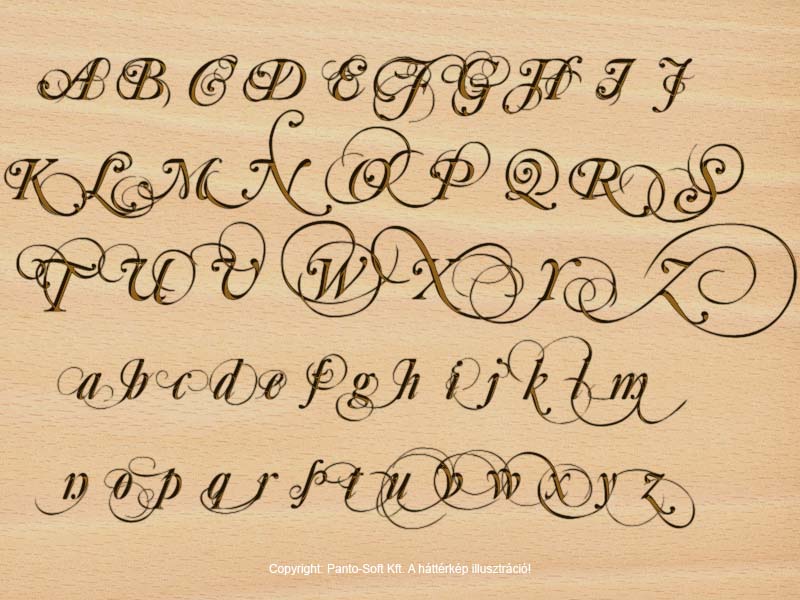 A B C D E F G H I J
K L M N O P Q R S
T U V W X Y Z
a b c d e f g h i j k l m
n o p q r s t u v w x y z
Copyright: Panto-Soft Kft. A háttérkép illusztráció!